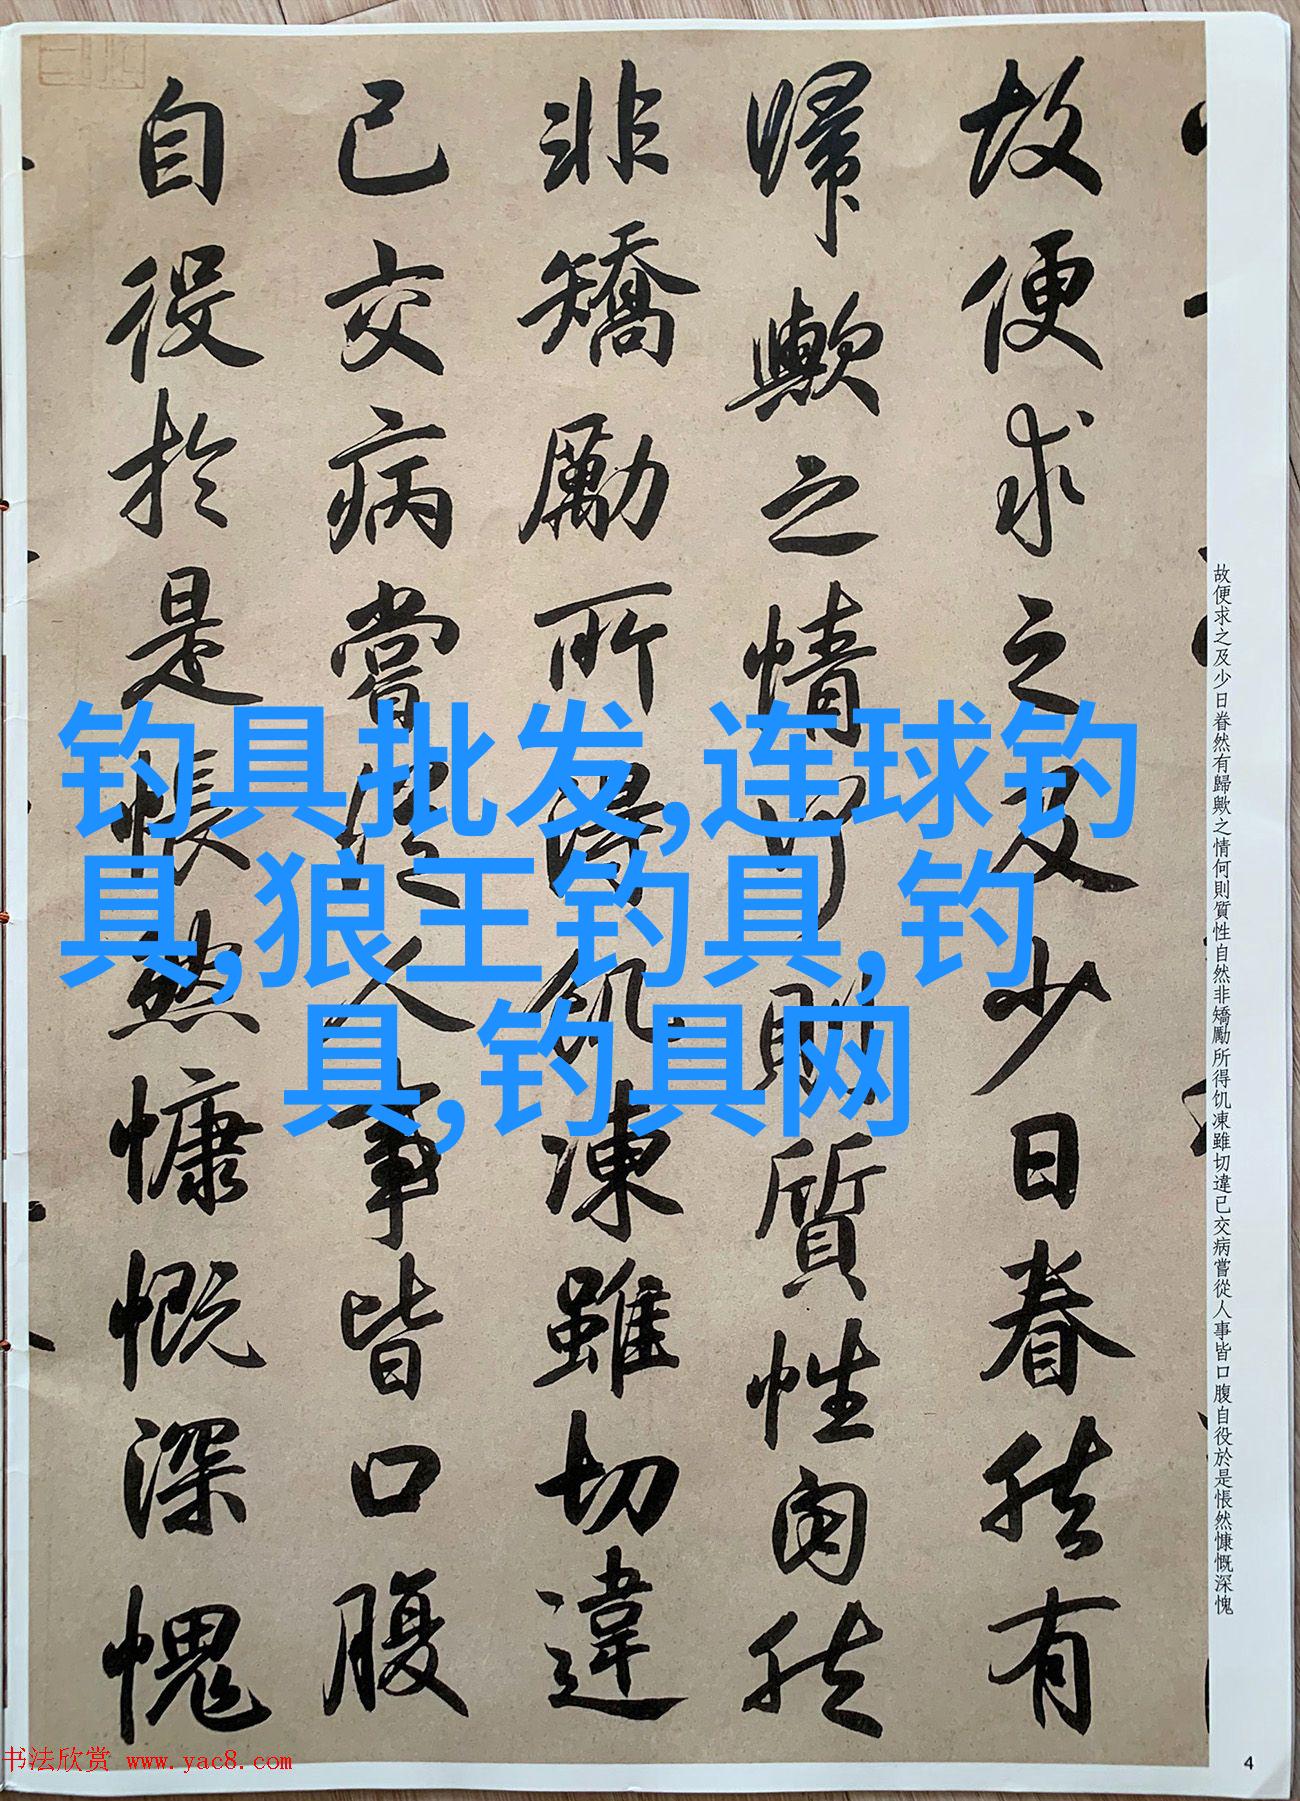 故便求之及少日眷然有
歸歟之情何則質性自然
非矯勵所得飢凍雖切違
已交病嘗從人事皆口腹
自役於是悵然慷慨深愧
钓具批发,连球钓
具,狼王钓具,钓
具,钓具网
故便求之及少日眷然有歸歟之情何則質性自然非矯勵所得饥凍雖切違已交病嘗從人事皆口腹自役於是悵然慷慨深愧
4
书法欣赏 www.yac8.com